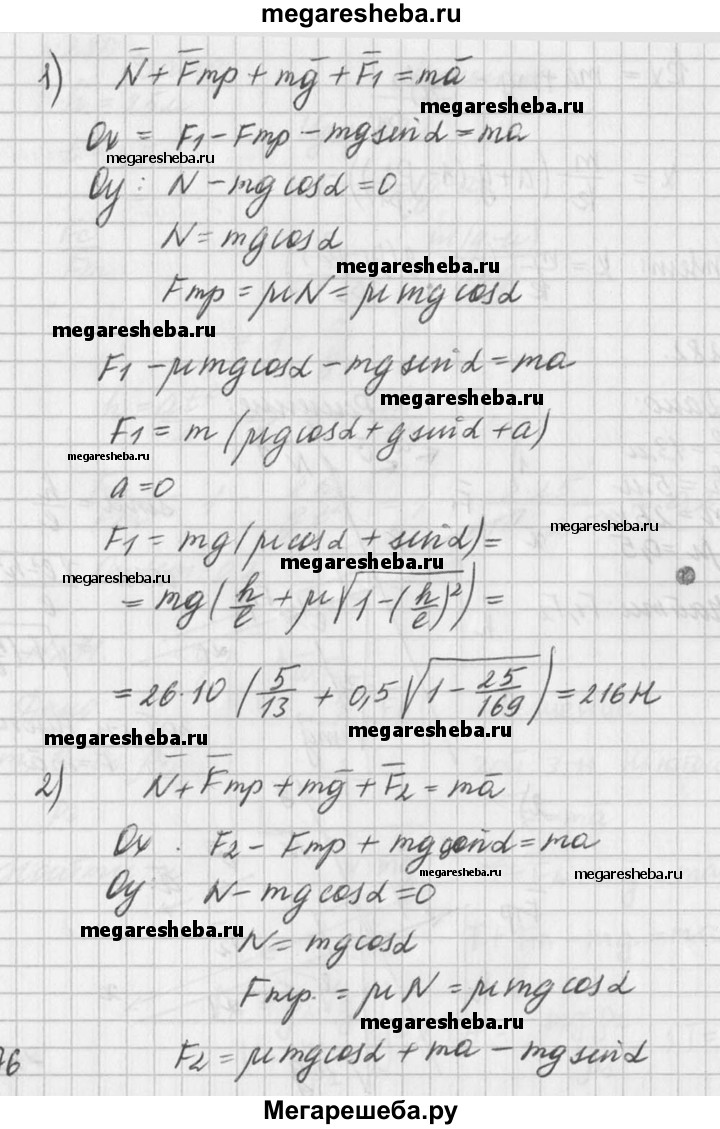 megaresheba.ru
1) N̄ + F̄тр + mḡ + F̄₁ = mā
megaresheba.ru
Ox = F₁ - Fтр - mg sin α = ma
megaresheba.ru
Oy: N - mg cos α = 0
N = mg cos α
megaresheba.ru
Fтр = μN = μmg cos α
megaresheba.ru
F₁ - μmg cos α - mg sin α = ma
megaresheba.ru
F₁ = m (μg cos α + g sin α + a)
megaresheba.ru
a = 0
megaresheba.ru
F₁ = mg (μ cos α + sin α) =
megaresheba.ru
megaresheba.ru
= mg (h/l + μ√(1 - (h/l)²)) =
= 26·10 (5/13 + 0,5 √(1 - 25/169)) = 216 Н
megaresheba.ru
megaresheba.ru
2) N̄ + F̄тр + mḡ + F̄₂ = mā
Ox. F₂ - Fтр + mg sin α = ma
megaresheba.ru
megaresheba.ru
Oy N - mg cos α = 0
megaresheba.ru
N = mg cos α
Fтр. = μN = μmg cos α
megaresheba.ru
76
F₂ = μmg cos α + ma - mg sin α
Мегарешеба.ру